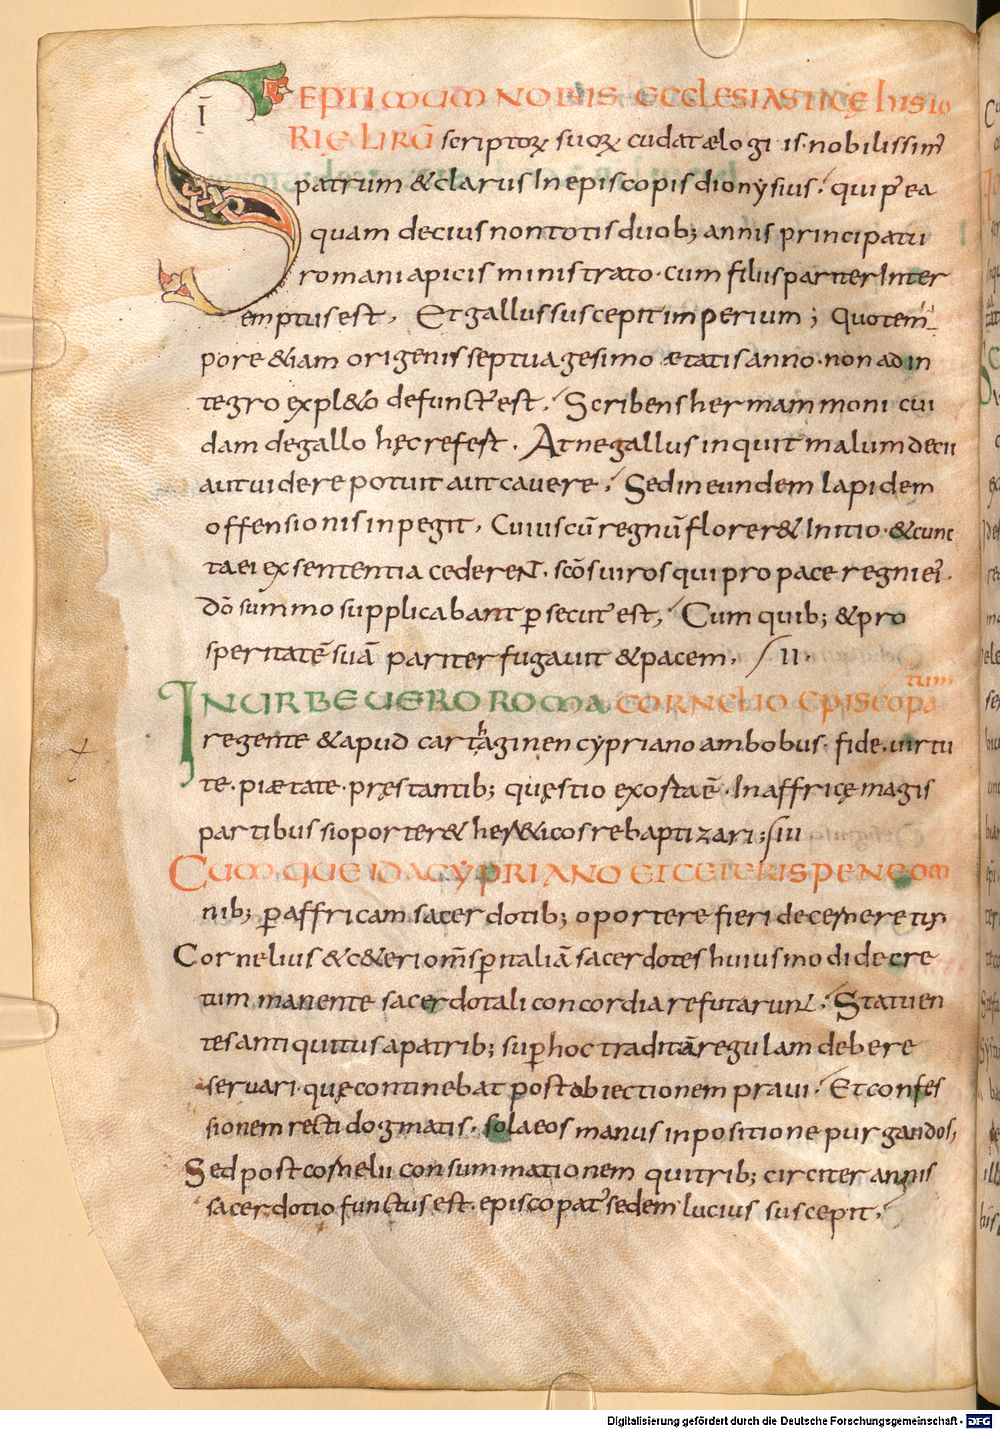 Ī
SEPTIMUM NOBIS ECCLESIASTICĘ hISTO
RIĘ LIBRŪ scriptoꝝ suoꝝ cudat ælogi is nobilissim̄
patrum &clarus In episcopis dionysius. qui p̄ea
quam decius non totis duob; annis principatu
romani apicis ministrato · cum filus pariter Inter
emptus est, Et gallus suscepit imperium; Quotem
pore &iam origenis septuagesimo ætatis anno · non ad in
tegro expl&o defunct' est, Scribens hermammoni cui
dam de gallo hęc refest. At ne gallus inquit malum decii
aut videre potuit aut cavere, Sed in eundem lapidem
offensionis inpegit, Cuius cū regnū florer& Initio · & cunc
ta ei ex sententia cederent. scōs viros qui pro pace regni ei.
dō summo supplicabant p̱secut' est, Cum quib; & pro
speritatē suā pariter fugavit & pacem, II.
IN URBE UERO ROMA CORNELIO EPISCOPA
tum
regente & apud carthaginen cypriano ambobus · fide, virtu
te · piætate · pręstantib; quęstio exosta ē · In affricę magis
partibus si oporter& her&icos rebaptizari; III
CUMQUE IDA CYPRIANO ET CETERIS PENE OM
nib; p̱ affricam sacerdotib; oportere fieri decerneretur
Cornelius & c&eri om̄s p̱ italiā sacerdotes huiusmodi decre
tum manente sacerdotali concordia refutarunt. Statuen
tes antiquitus a patrib; sup̱ hoc traditā regulam debere
servari · quę continebat post obiectionem pravi. Et confes
sionem recti dogmatis · sola eos manus inpositione purgandos,
Sed post cornelii consummationem qui trib; circiter annis
sacerdotio functus est. episcopat' sedem lucius suscepit,
Digitalisierung gefördert durch die Deutsche Forschungsgemeinschaft - DFG